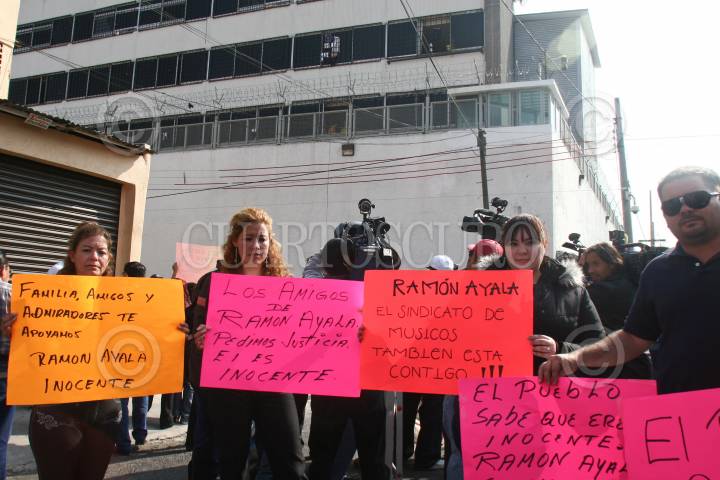 FAMILIA, AMIGOS Y
ADMIRADORES TE
APOYAMOS
RAMON AYALA
INOCENTE
LOS AMIGOS
DE
RAMON AYALA
PEDIMOS JUSTICIA.
El ES
INOCENTE.
RAMÓN AYALA
EL SINDICATO DE
MUSICOS
TAMBIEN ESTA
CONTIGO !!!
EL PUEBLO
SABE QUE ERE
INOCENTE.
RAMON AYAL
EL
CUARTOSCURO
©